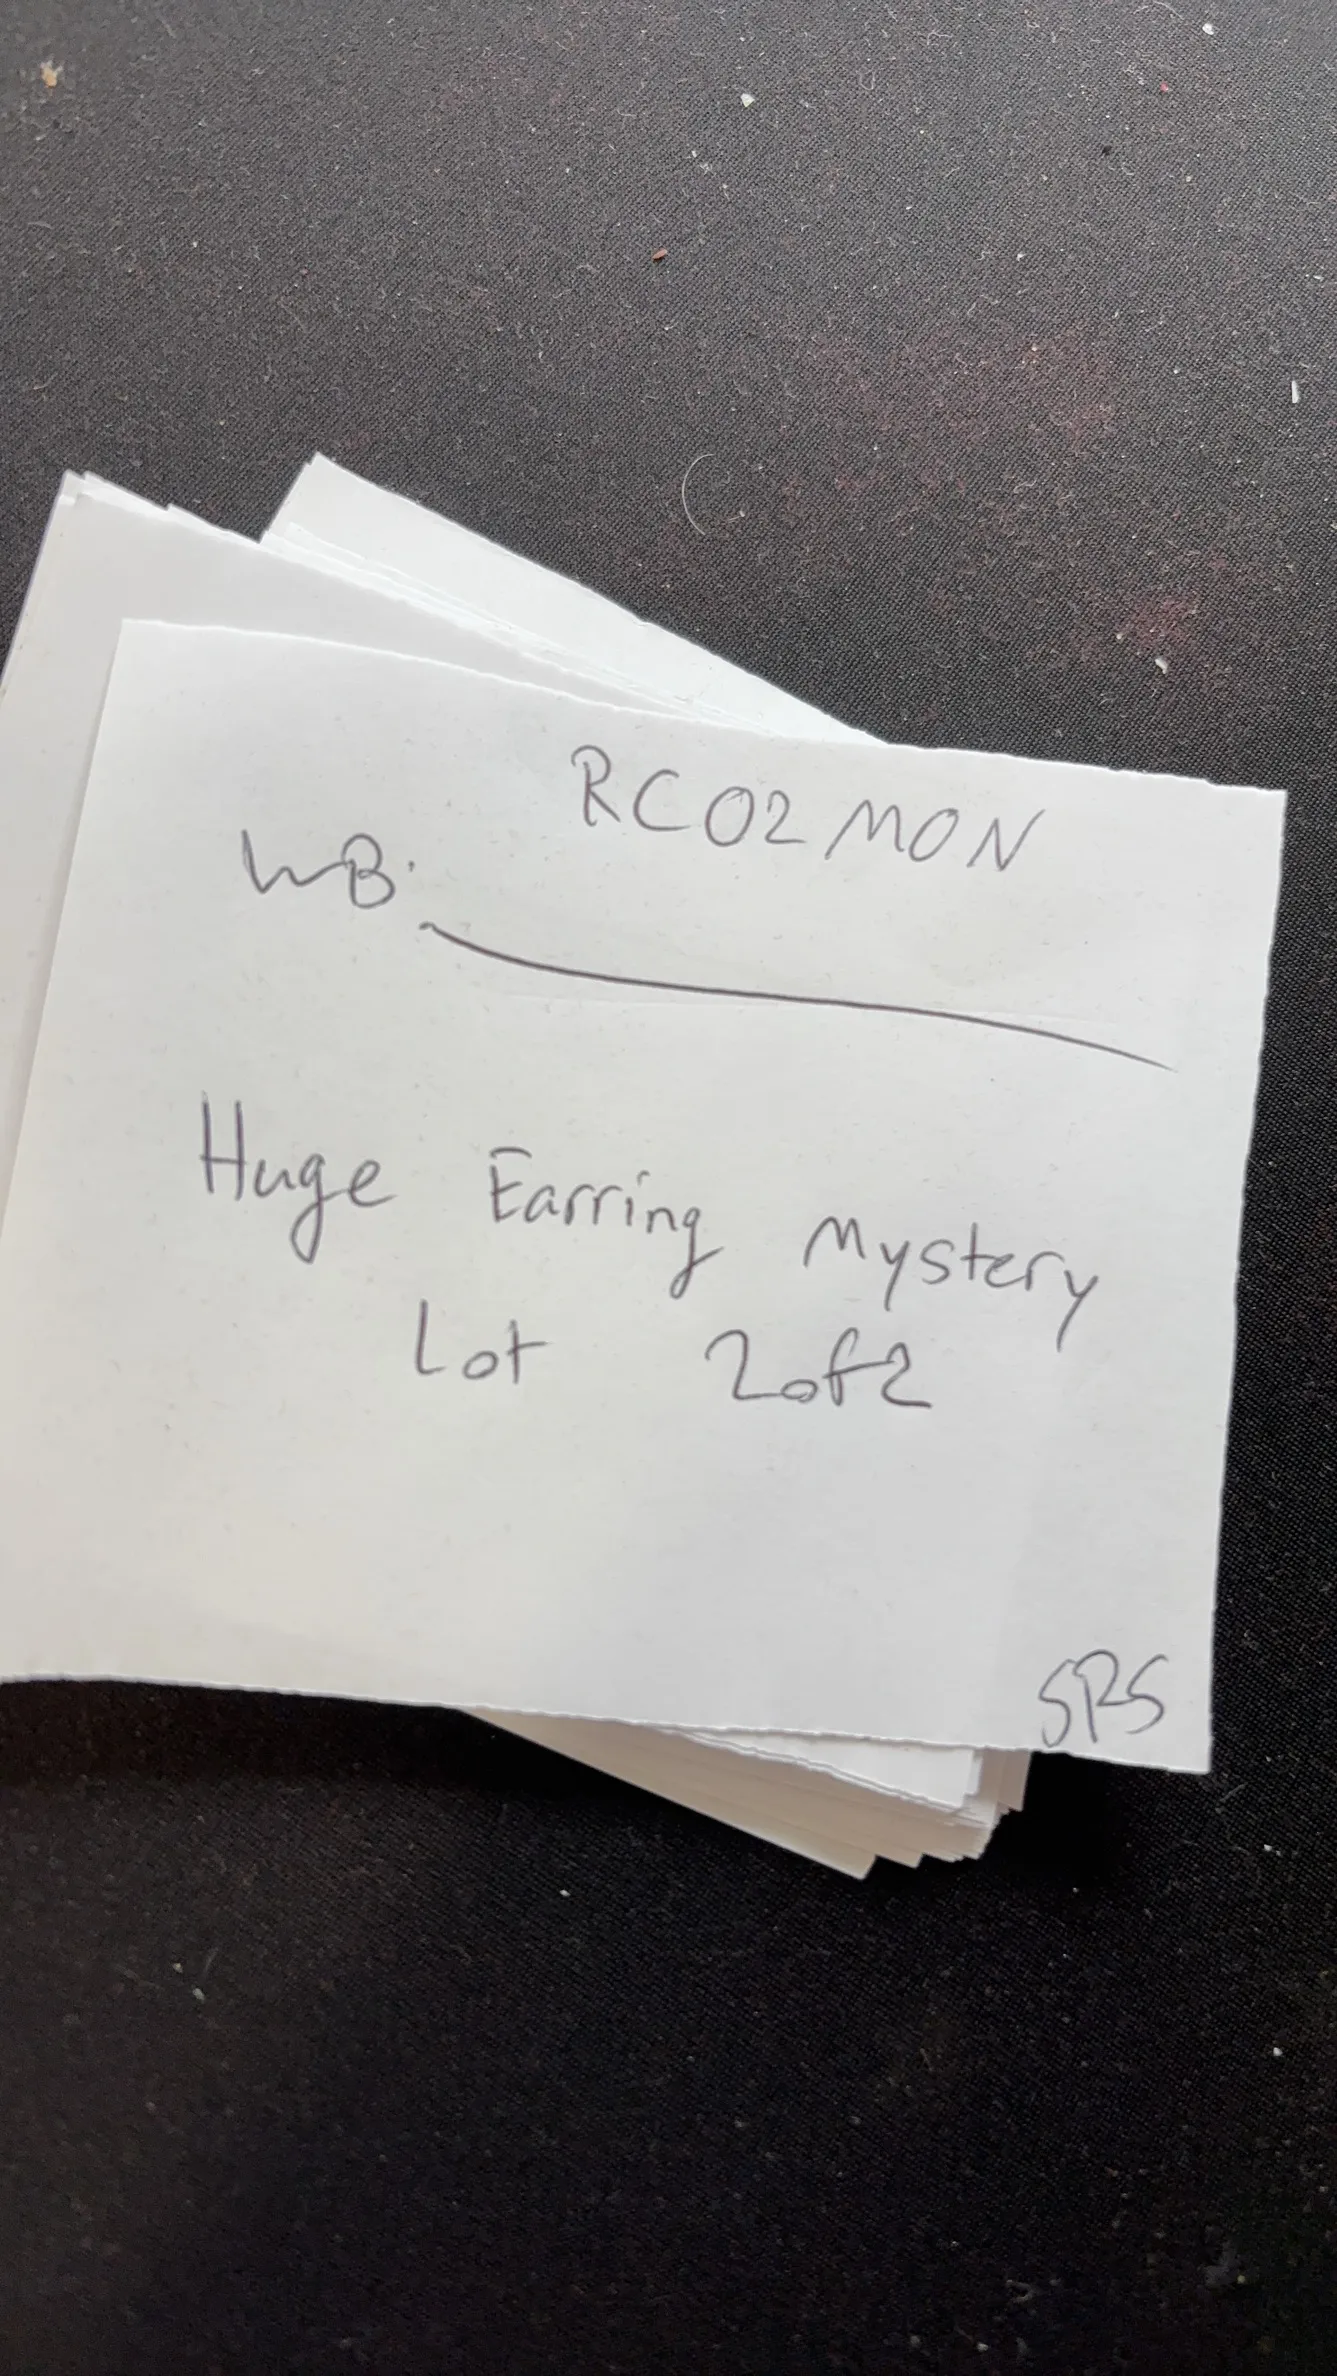 RC02MON
WB.
Huge Earring Mystery
Lot 2of2
SRS